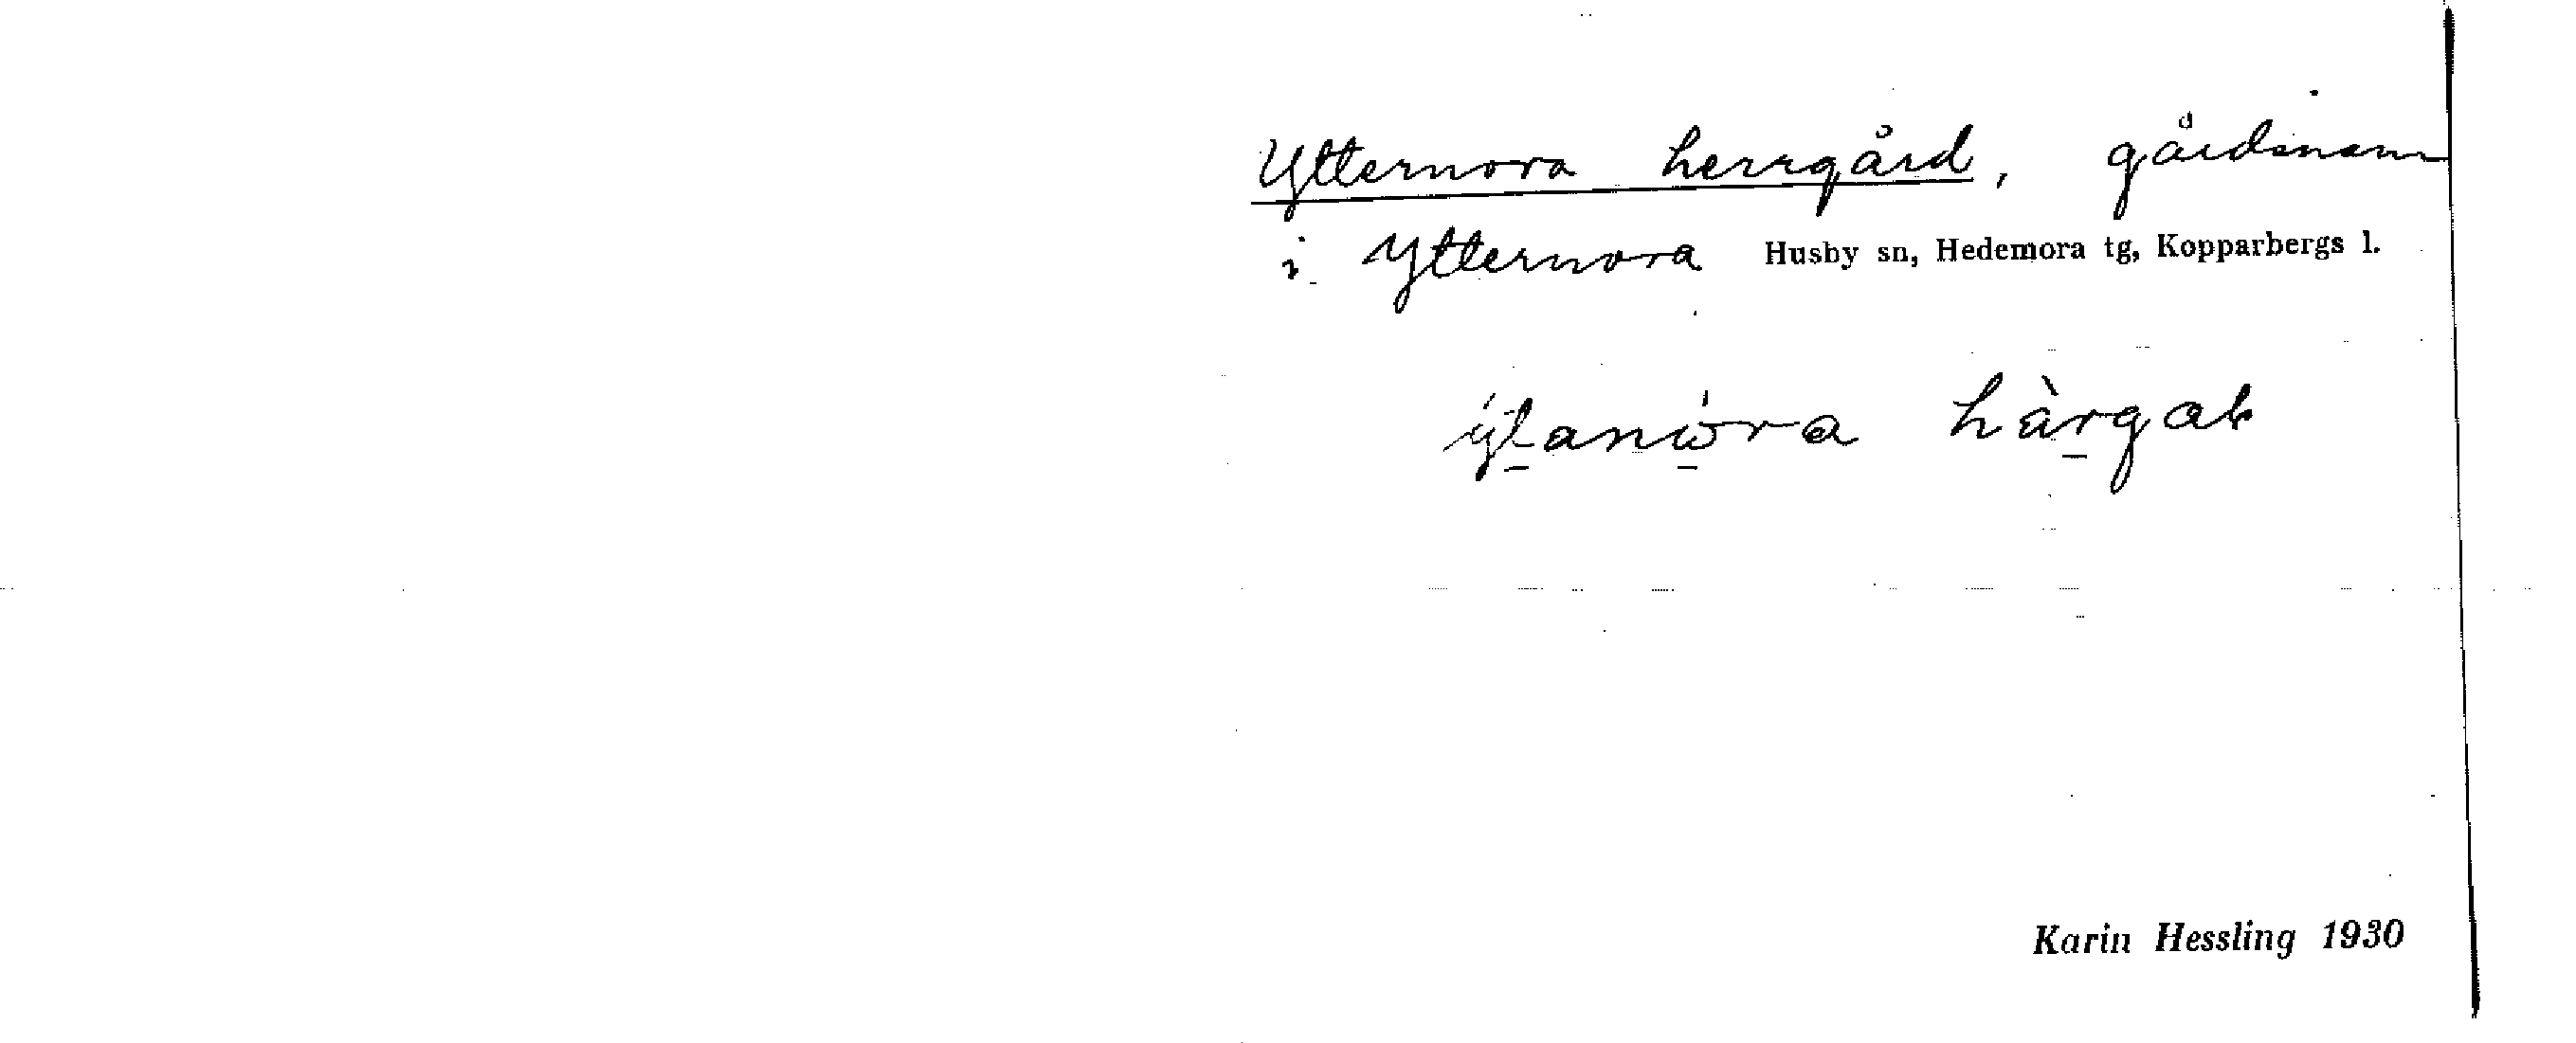 Ytternora herrgård, gårdsnamn
i Ytternora Husby sn, Hedemora tg, Kopparbergs l.
Karin Hessling 1930